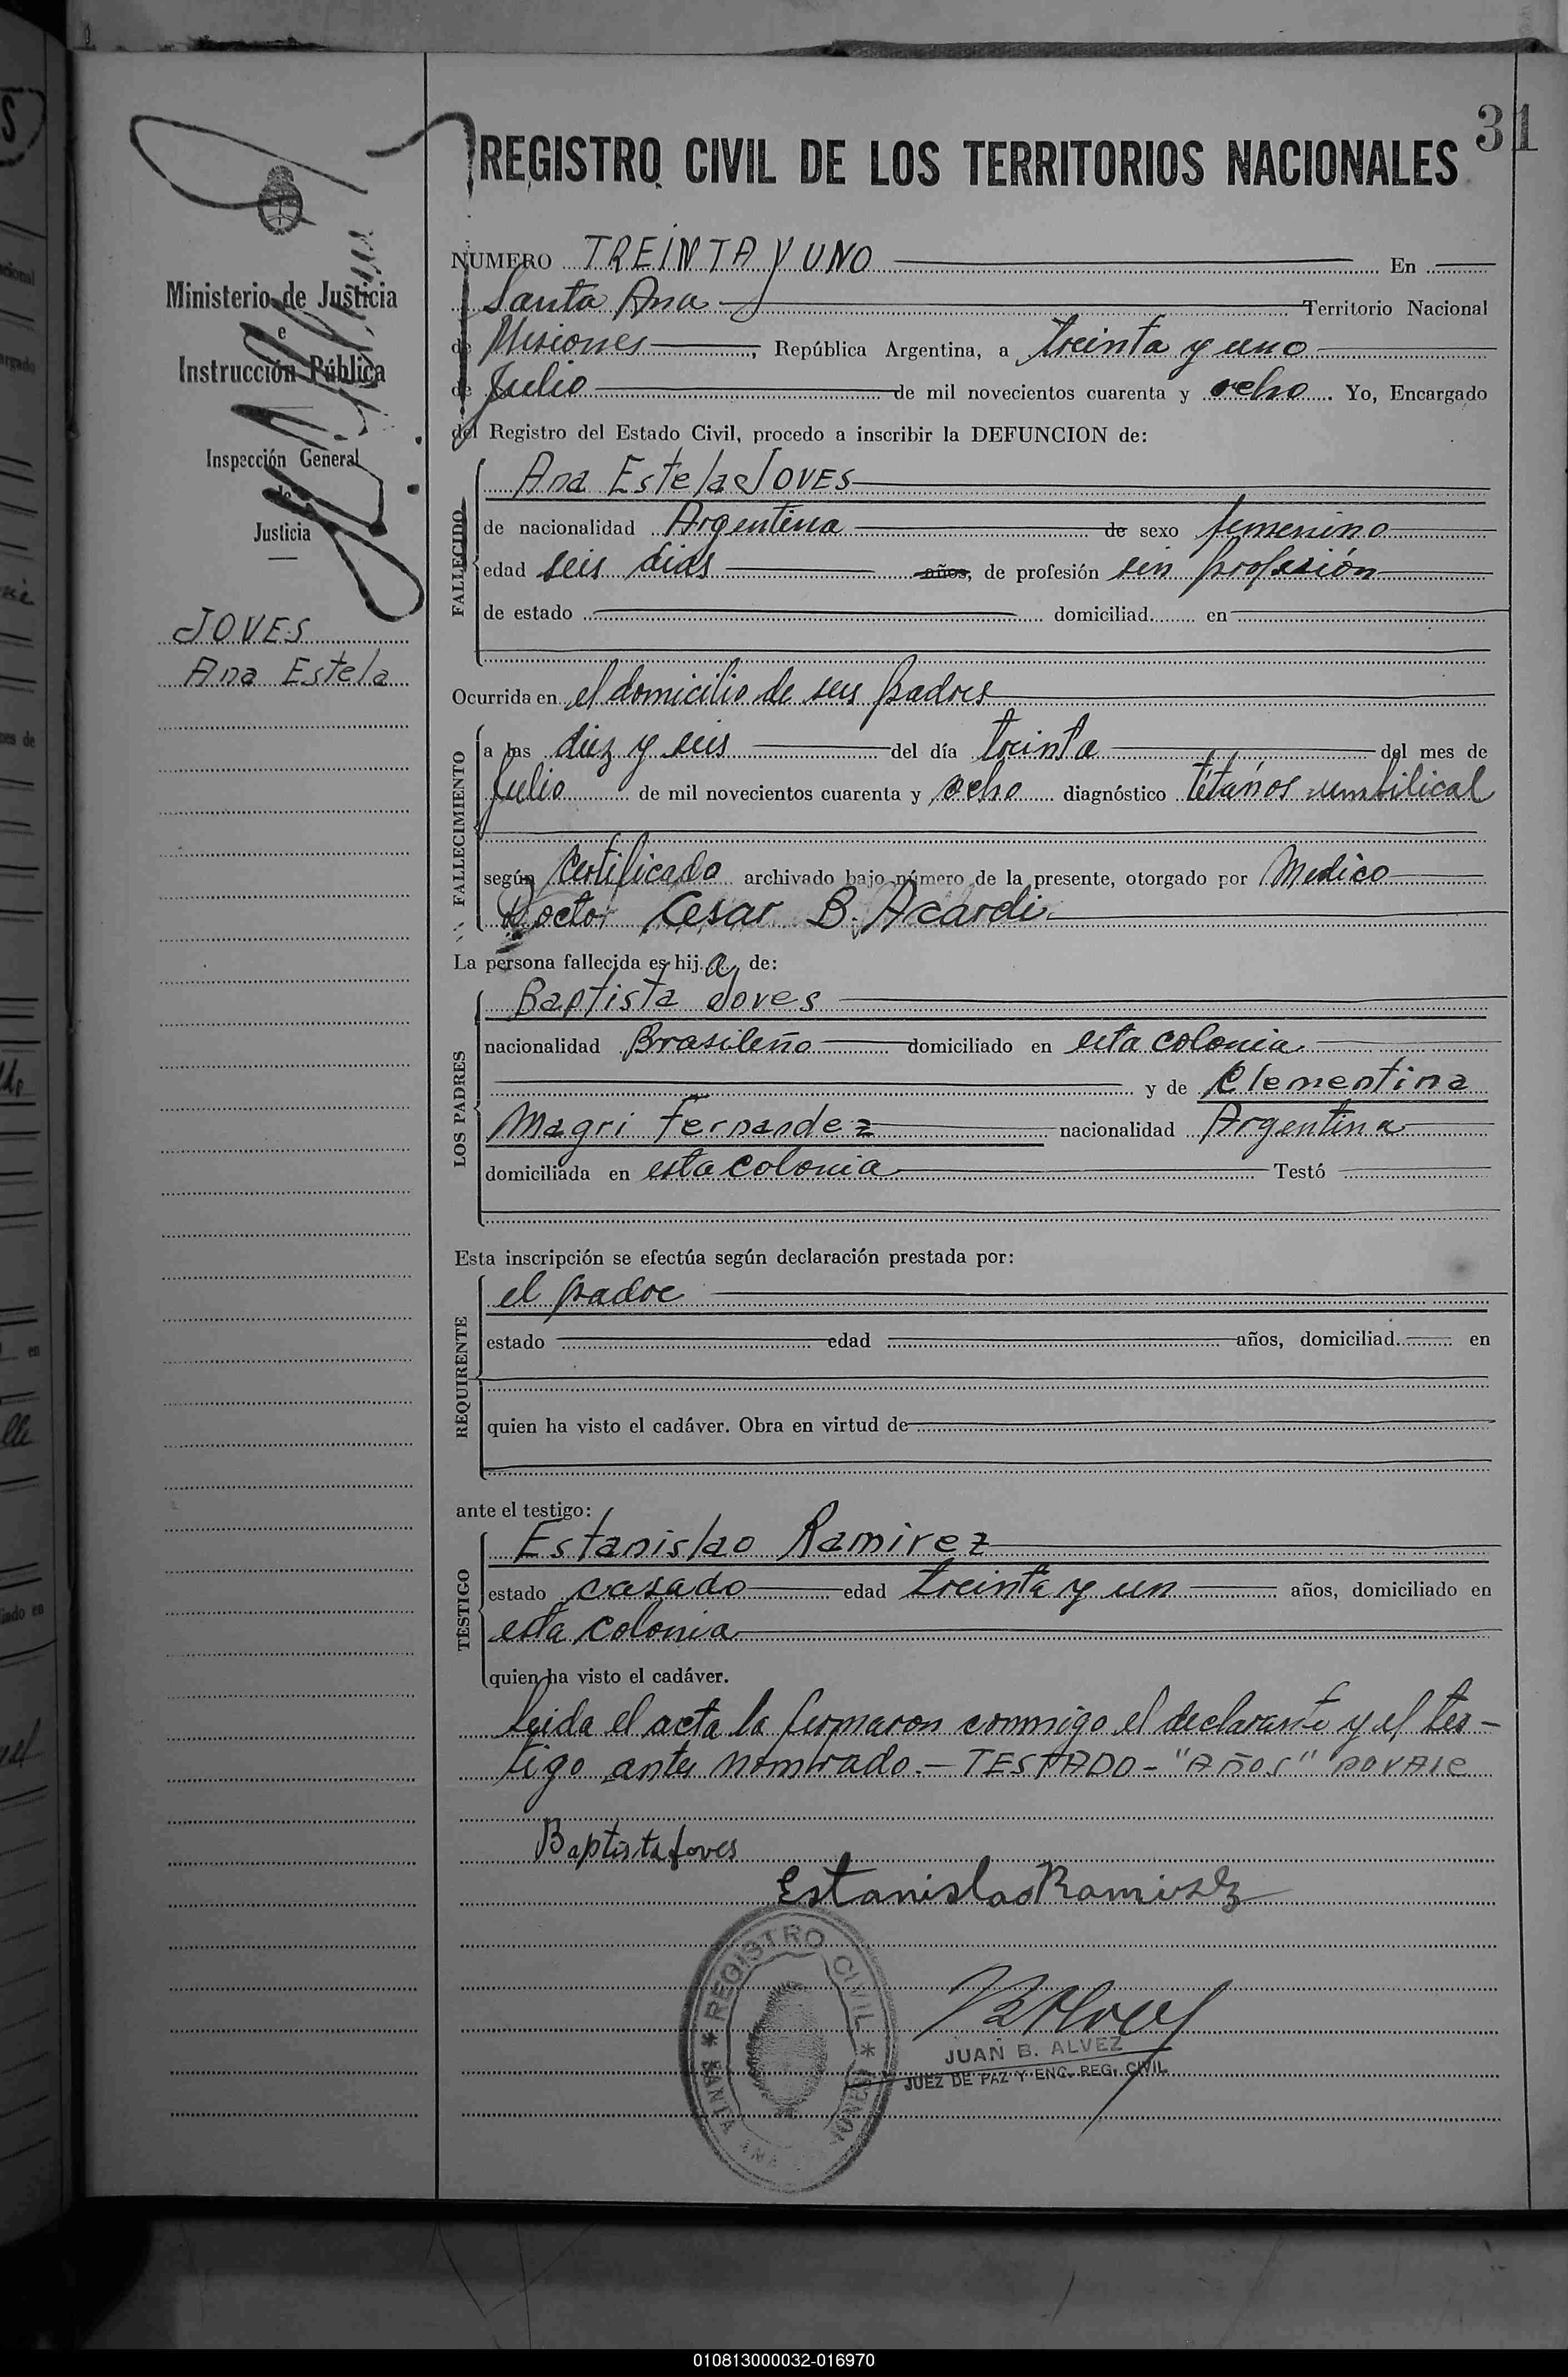 31
REGISTRO CIVIL DE LOS TERRITORIOS NACIONALES
Ministerio de Justicia
e
Instrucción Pública
Inspección General
de
Justicia
JOVES
Ana Estela
NUMERO TREINTA Y UNO En
Santa Ana Territorio Nacional
de Misiones, República Argentina, a treinta y uno
de Julio de mil novecientos cuarenta y ocho. Yo, Encargado
del Registro del Estado Civil, procedo a inscribir la DEFUNCION de:
FALLECIDO
Ana Estela JOVES
de nacionalidad Argentina de sexo femenino
edad seis dias años, de profesión sin profesión
de estado domiciliad en
Ocurrida en el domicilio de sus padres
FALLECIMIENTO
a las diez y seis del día treinta del mes de
Julio de mil novecientos cuarenta y ocho diagnóstico tétanos umbilical
según Certificado archivado bajo número de la presente, otorgado por Medico
Doctor Cesar B. Acardi
La persona fallecida es hija de:
LOS PADRES
Baptista Joves
nacionalidad Brasileño domiciliado en esta colonia
y de Clementina
Magri Fernandez nacionalidad Argentina
domiciliada en esta colonia Testó
Esta inscripción se efectúa según declaración prestada por:
REQUIRENTE
el padre
estado edad años, domiciliad en
quien ha visto el cadáver. Obra en virtud de
ante el testigo:
TESTIGO
Estanislao Ramirez
estado casado edad treinta y un años, domiciliado en
esta colonia
quien ha visto el cadáver.
Leida el acta la firmaron conmigo el declarante y el tes-
tigo antes nombrado.- TESTADO- "AÑOS" NO VALE
Baptista Joves
Estanislao Ramirez
REGISTRO CIVIL
SANTA ANA
JUAN B. ALVEZ
JUEZ DE PAZ Y ENC. REG. CIVIL
010813000032-016970